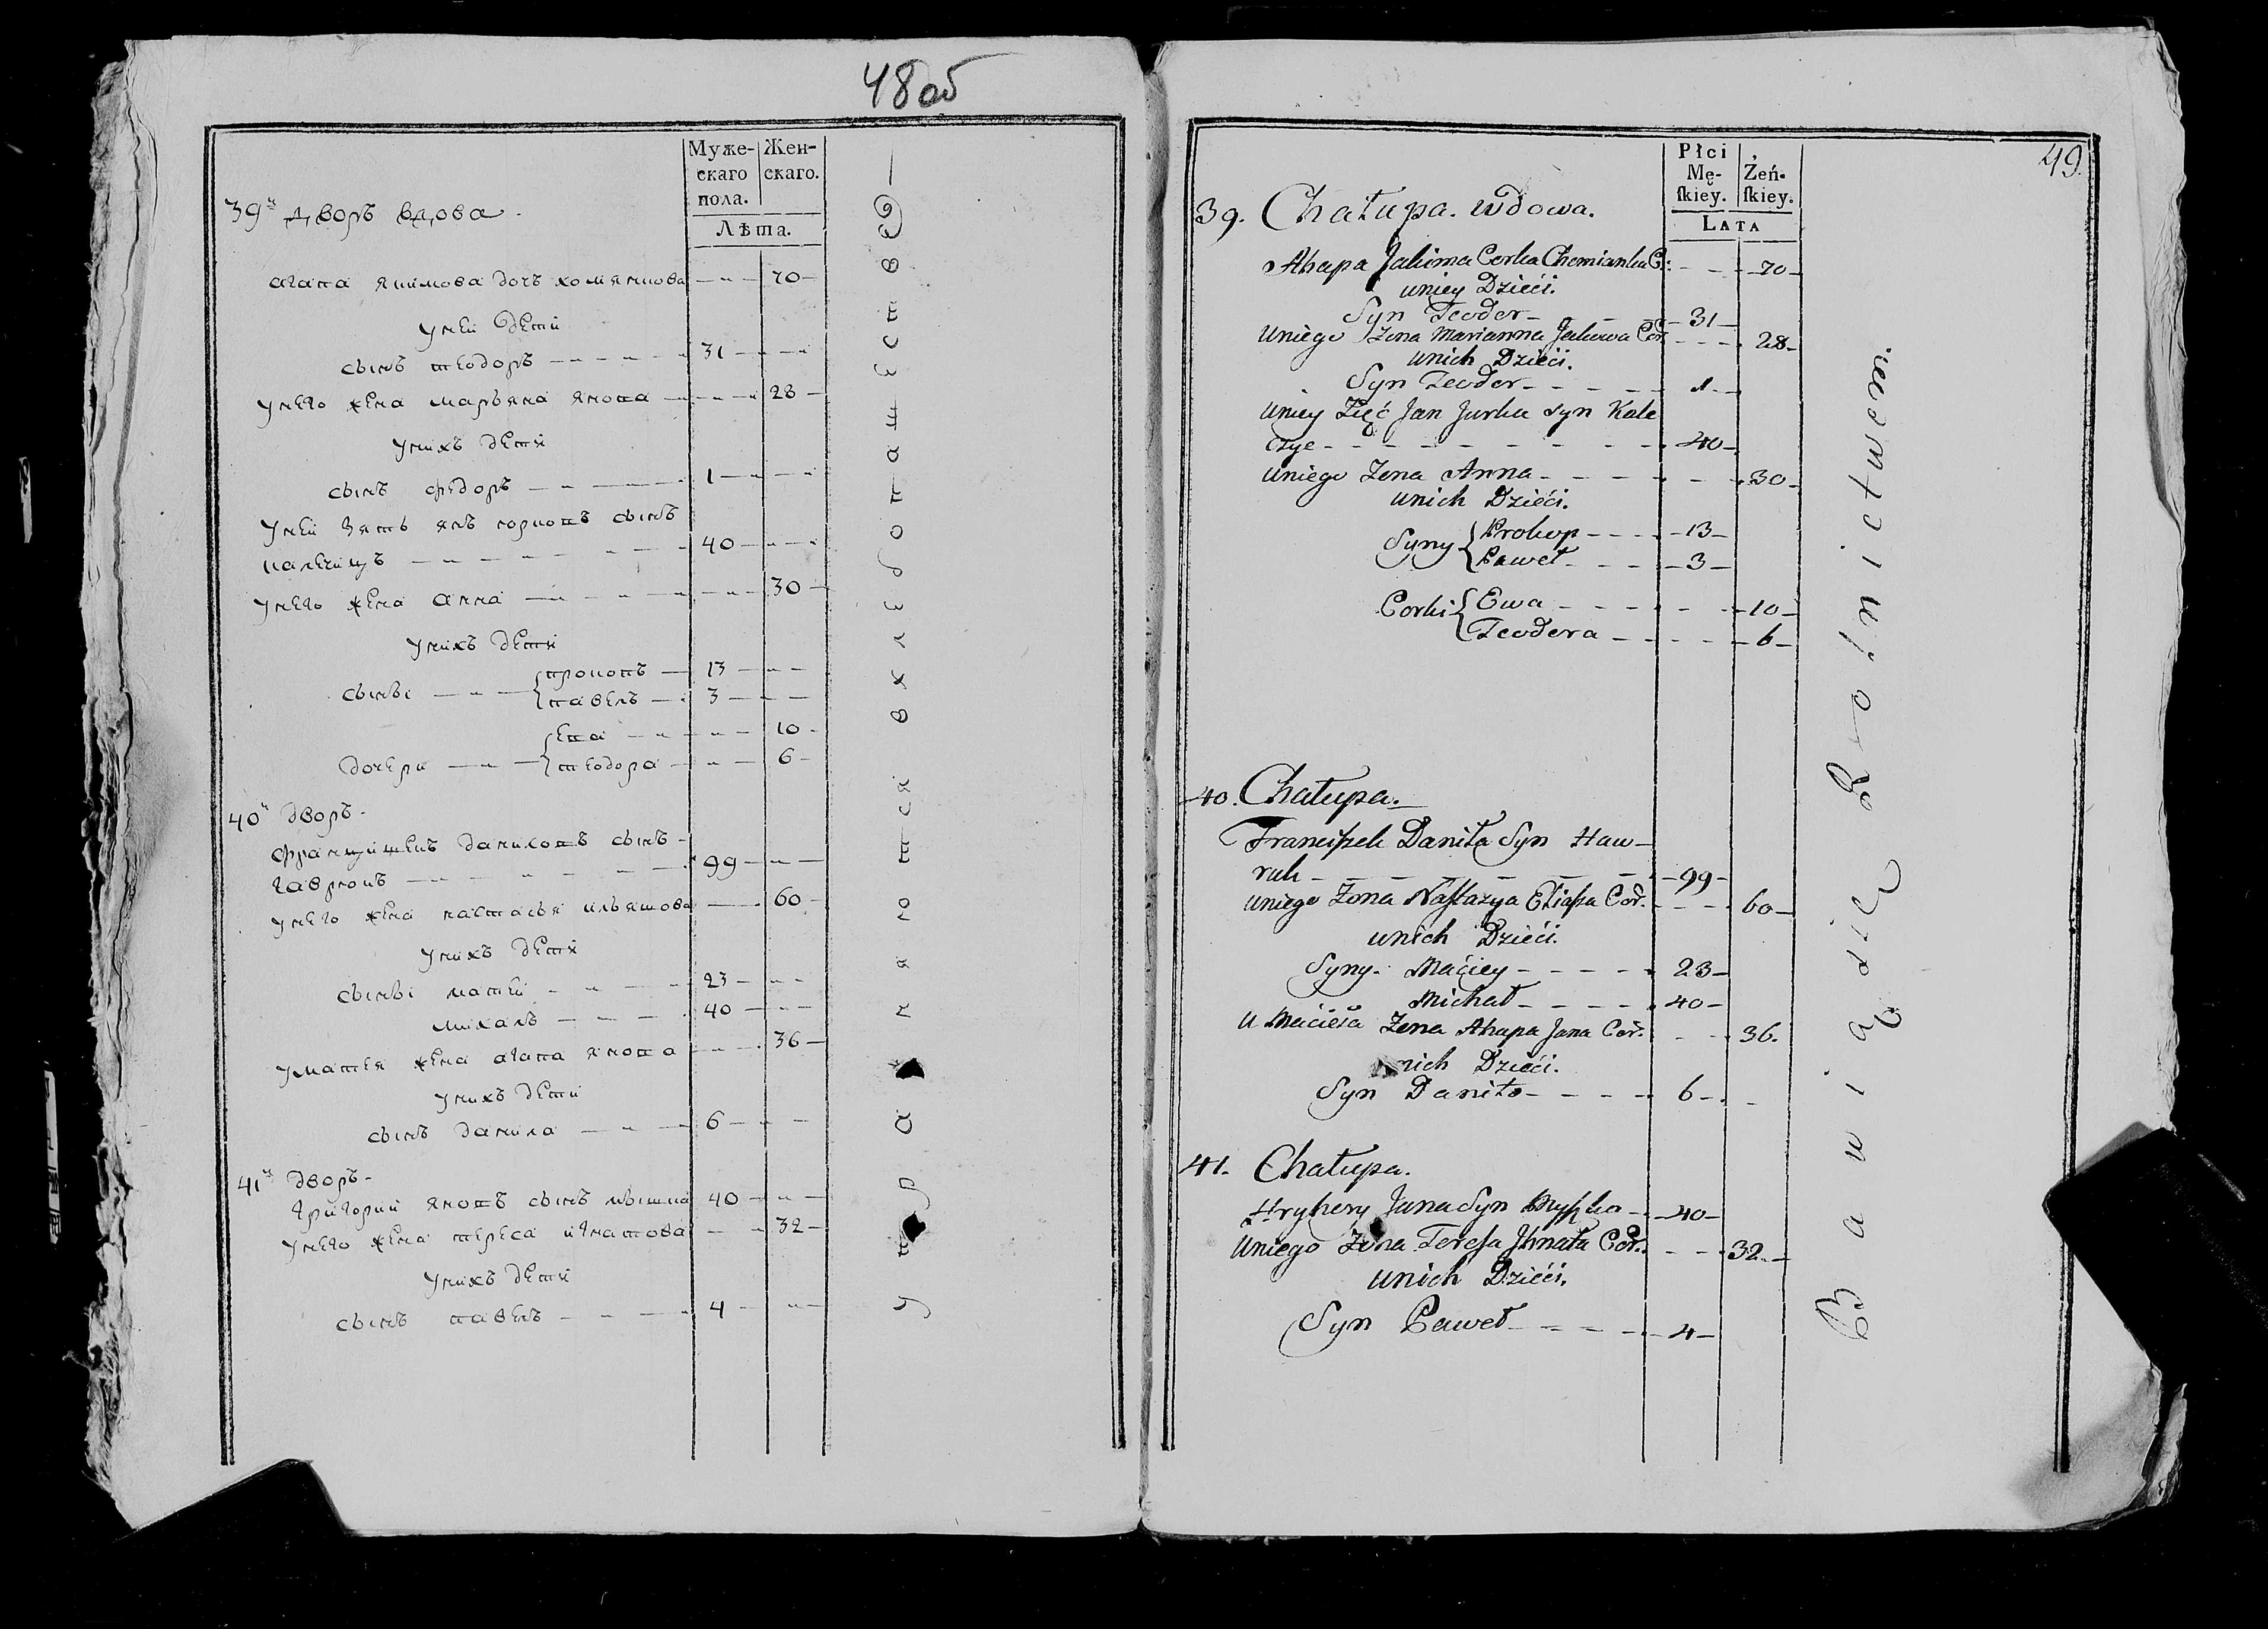 48 об
Муже-
скаго
пола.
Жен-
скаго.
Лѣта.
39й дворъ вдова.
агапа якимова дочь хомянкова — 70
у ней дети
сынъ теодоръ — 31
у него жена марьяна якова — 28
у нихъ дети
сынъ федоръ — 1
у ней зять янъ юрковъ сынъ
калечицъ — 40
у него жена анна — 30
у нихъ дети
сыны — прокопъ — 13
павелъ — 3
ева — 10
дочери — теодора — 6
40й дворъ.
францишекъ даниловъ сынъ
гаврукъ — 99
у него жена настасья ильяшова — 60
у нихъ дети
сыны матей — 23
михалъ — 40
у матея жена агапа янова — 36
у нихъ дети
сынъ данила — 6
41й дворъ.
григорий яновъ сынъ мышка 40
у него жена тереса игнатова — 32
у нихъ дети
сынъ павелъ — 4
упражняются в хлебопашестве
49.
Płci
Mę-
ſkiey.
Żeń-
ſkiey.
LATA
39. Chałupa. wdowa.
Ahapa Jakima Corka Chomianka C: — 70
u niey Dzieći.
Syn Teodor — 31
u niego Żona Marianna Jakowa Cor. — 28
u nich Dzieći.
Syn Teodor — 1
u niey Zięć Jan Jurka syn Kale
czyc — 40
u niego Żona Anna — 30
u nich Dzieći.
Syny { Prokop — 13
Paweł — 3
Corki { Ewa — 10
Teodora — 6
40. Chałupa.
Franciſzek Daniła Syn Haw-
ruk — 99
u niego Żona Naſtazya Eliaſza Cor. — 60
u nich Dzieći.
Syny. Maćiey — 23
Michał — 40
u Macieia Żona Ahapa Jana Cor. — 36.
u nich Dzieći.
Syn Daniło — 6
41. Chałupa.
Hryhery Jana Syn Myſzka — 40
u niego Żona Tereſa Jhnata Cor. — 32
u nich Dzieći.
Syn Paweł — 4
Bawią się Rolnictwem.